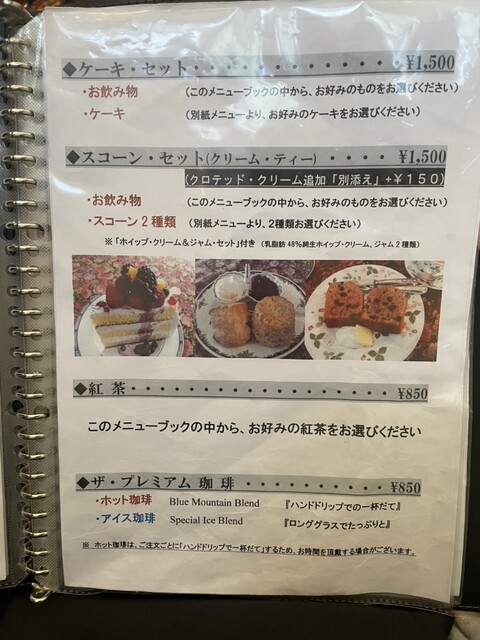 ◆ケーキ・セット・・・・・・・・・・・・・¥1,500
・お飲み物 (このメニューブックの中から、お好みのものをお選びください)
・ケーキ (別紙メニューより、お好みのケーキをお選びください)
◆スコーン・セット(クリーム・ティー)・・・・¥1,500
(クロテッド・クリーム追加「別添え」+¥150)
・お飲み物 (このメニューブックの中から、お好みのものをお選びください)
・スコーン2種類 (別紙メニューより、2種類お選びください)
※「ホイップ・クリーム&ジャム・セット」付き (乳脂肪48%純生ホイップ・クリーム、ジャム2種)
◆紅 茶・・・・・・・・・・・・・・・・・・¥850
このメニューブックの中から、お好みの紅茶をお選びください
◆ザ・プレミアム 珈 琲 ・・・・・・・・・・¥850
・ホット珈琲 Blue Mountain Blend 『ハンドドリップでの一杯だて』
・アイス珈琲 Special Ice Blend 『ロンググラスでたっぷりと』
※ ホット珈琲は、ご注文ごとに「ハンドドリップで一杯だて」するため、お時間を頂戴する場合がございます。